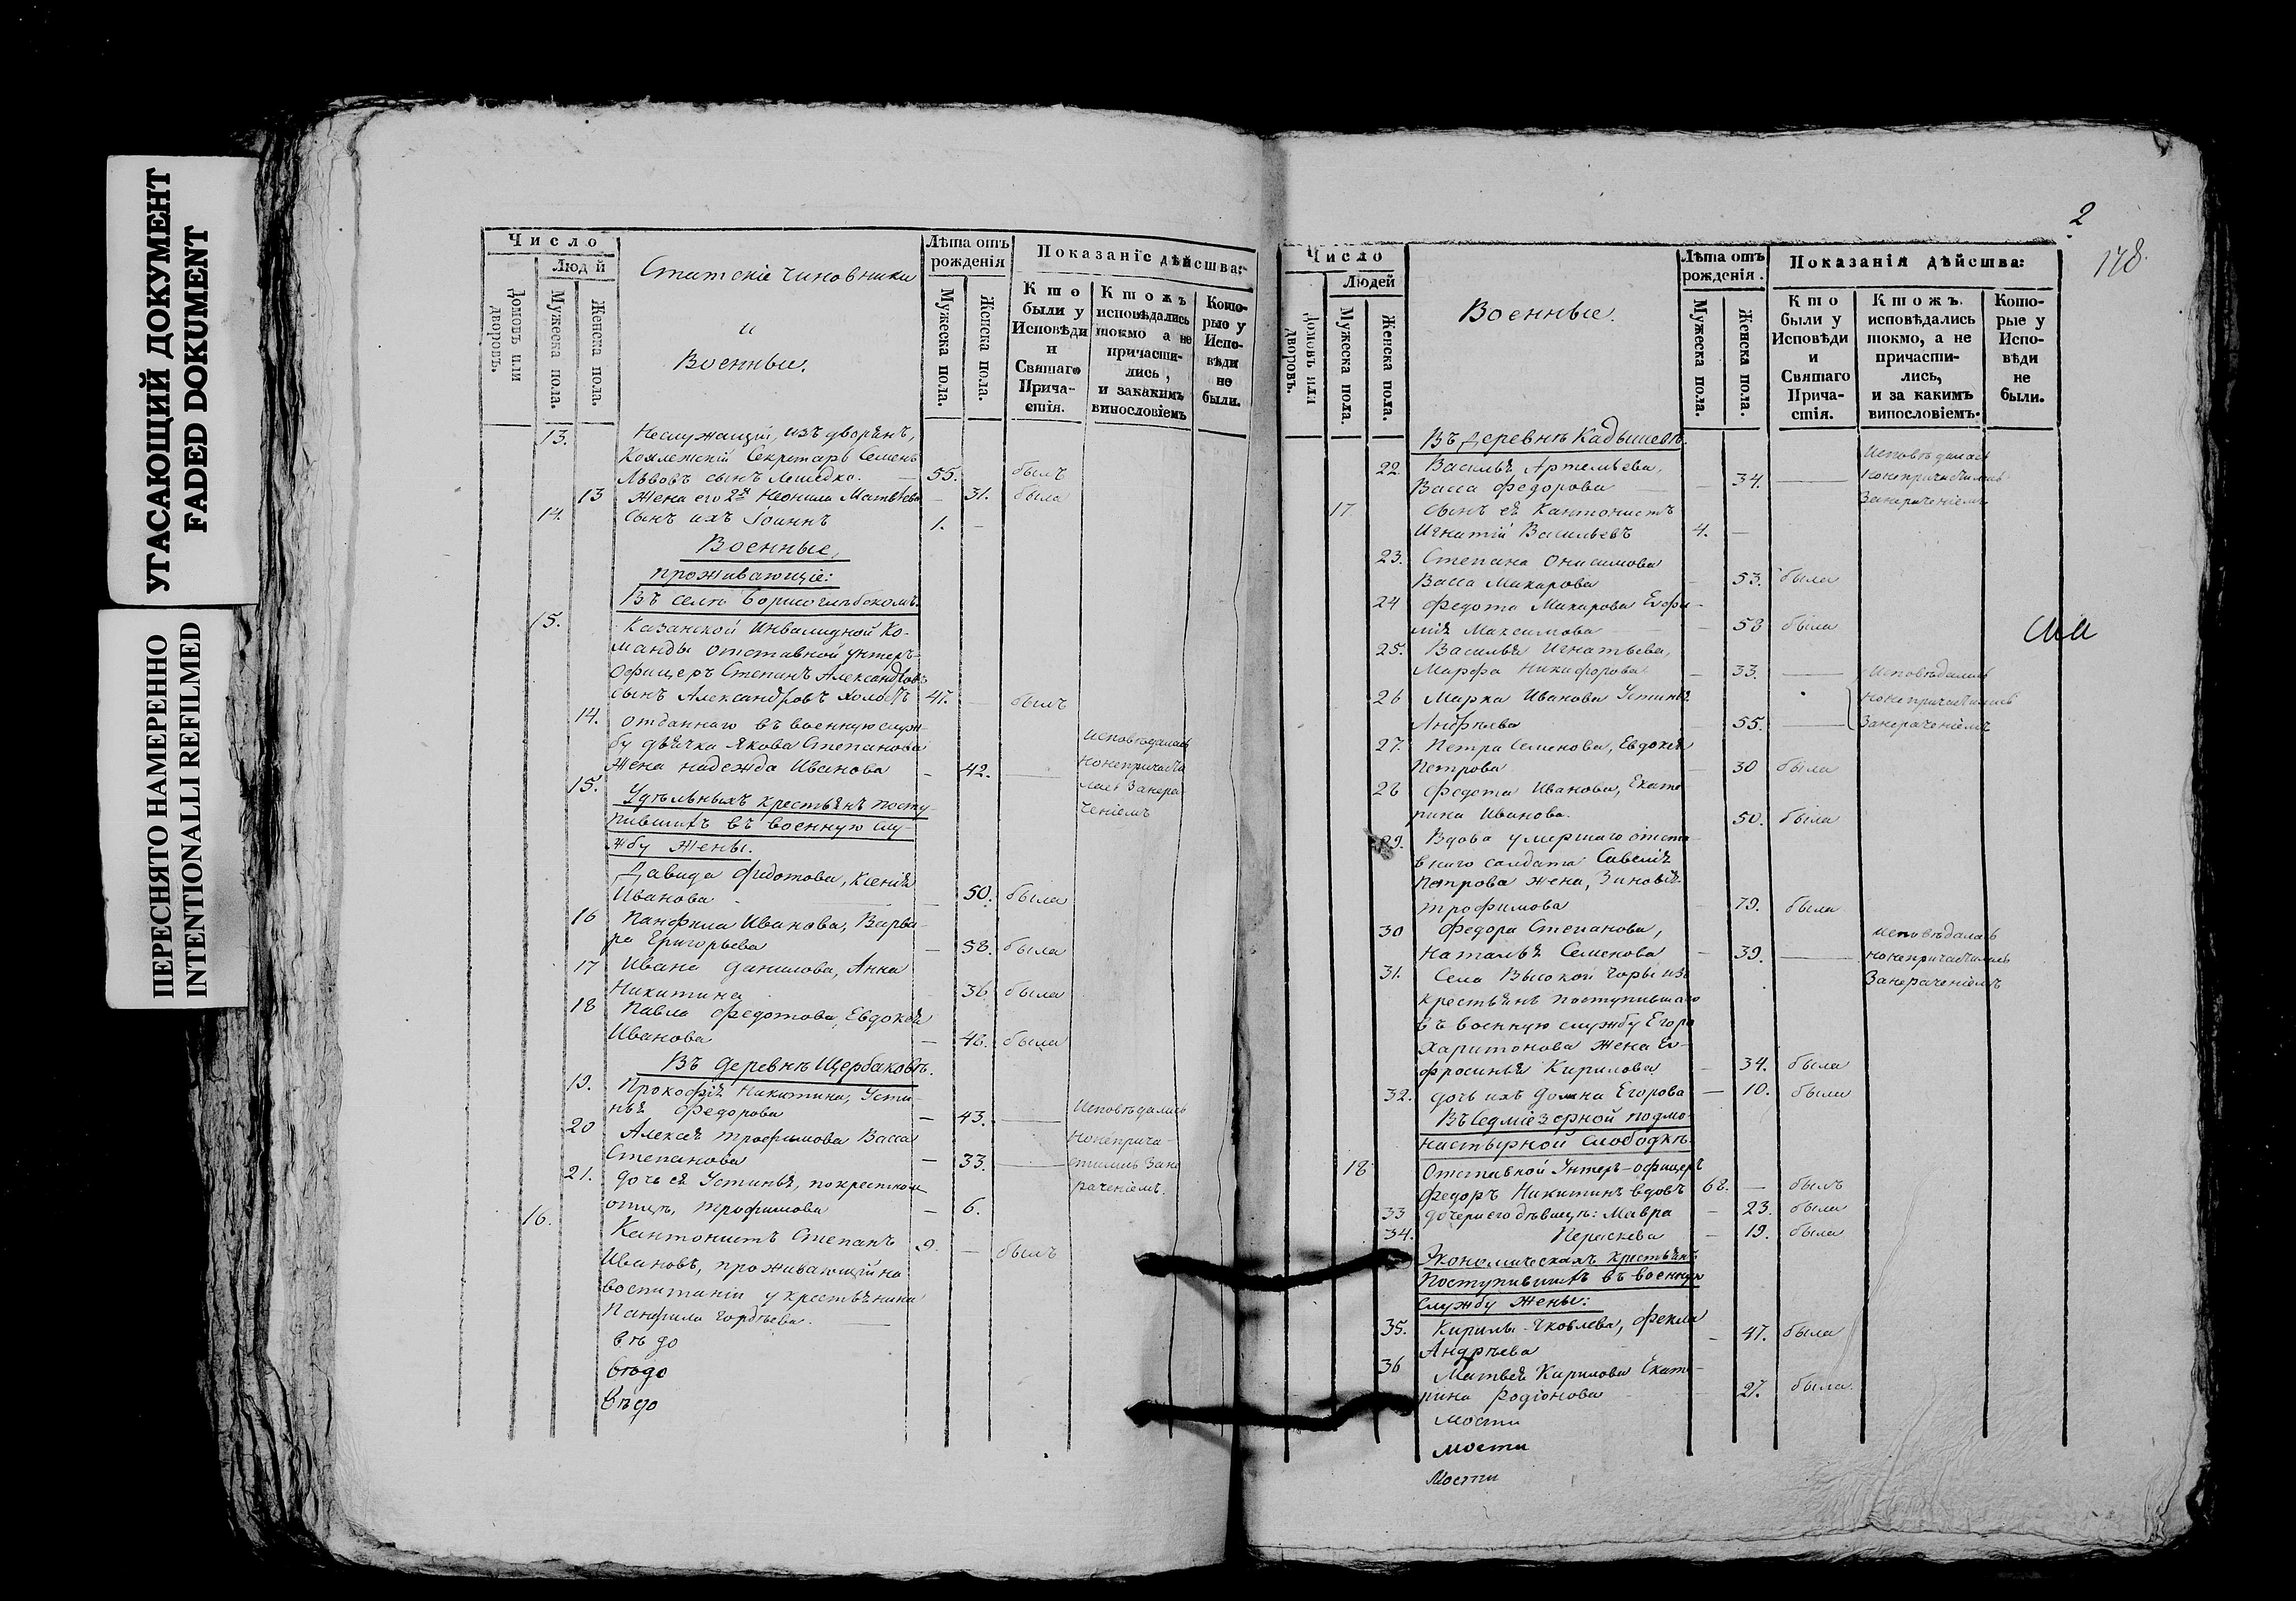 УГАСАЮЩИЙ ДОКУМЕНТ
FADED DOKUMENT
ПЕРЕСНЯТО НАМЕРЕННО
INTENTIONALLI REFILMED
Число
Людй
Домовъ или дворовъ.
Мужеска пола.
Женска пола.
Статскіе чиновники
и
Военные.
Лѣта отъ рожденія
Мужеска пола.
Женска пола.
Показаніе дѣйства:
Кто были у Исповѣди и Святаго Причастія.
Ктожъ исповѣдались токмо а не причастились, и закакимъ винословіемъ
Которые у Исповѣди не были.
13. Неслужащій, изъ дворянъ,
Коллежскій Секретарь Семенъ
Львовъ сынъ 55. былъ
13 Жена его 2я Неонила Матвѣева — 31. была
14. сынъ ихъ Іоаннъ 1. —
Военные,
проживающіе:
Въ селѣ Борисоглѣбскомъ.
15. Казанской Инвалидной Ко-
манды отставной унтеръ-
офицеръ Степанъ Александровъ
сынъ Александровъ холостъ 41. — былъ
14. отданнаго въ военную служ-
бу дьячка Якова Степанова
жена надежда Иванова — 42. — исповѣдалась
нонепричасти
лась Занера
ченіемъ
15. Удѣльныхъ крестьянъ посту-
пившихъ въ военную слу-
жбу жены.
Давида Федотова, Ксенія
Иванова — 50. была
16 Панфила Иванова, Варва-
ра Григорьева — 58. была
17 Ивана Данилова, Анна
Никитина 36 была
18 Павла Федотова, Евдокія
Иванова — 46. была
Въ деревнѣ Щербаковѣ.
19. Прокофія Никитина, Усти-
нья Федорова — 43. — Исповѣдались
20 Алексѣя Трофимова Васса нонеприча-
Степанова — 33. — стились Зане
21. дочь ея Устинья, покрестном раченіемъ.
отцѣ, Трофимова — 6.
16. Кантонистъ Степанъ 9. — былъ
Ивановъ, проживающій на
воспитаніи у крестьянина
Панфила Гордѣева.
вѣдо
вѣдо
вѣдо
2
178.
Число
Людей
Домовъ или дворовъ.
Мужеска пола
Женска пола.
Военные.
Лѣта отъ рожденія.
Мужеска пола.
Женска пола.
Показанія дѣйства:
Кто были у Исповѣди и Святаго Причастія.
Ктожъ исповѣдались токмо, а не причастились, и за какимъ винословіемъ.
Которые у Исповѣди не были.
Въ деревнѣ Кадышевѣ.
22. Василья Артемьева, Исповѣдалась
Васса Федорова — 34. — нонепричастилась
Занераченіемъ
17 сынъ ея Кантонистъ
Игнатій Васильевъ 4. —
23. Степана Онисимова
Васса Макарова — 53. была
24 Федота Макарова Евфи-
мія Максимова — 58 была
25. Василья Игнатьева,
Марфа Никифорова — 33. — Исповѣдались
26 Марка Иванова Устинья нонепричастились
Андрѣева 55. — Занераченіемъ
27. Петра Семенова, Евдокія
Петрова — 30 была
28 Федота Иванова, Екате
рина Иванова. 50. была
29. Вдова умершаго отста-
внаго солдата Савелія
Петрова жена, Зиновія
Трофимова — 79. была
30 Федора Степанова, исповѣдалась
Наталья Семенова — 39. — нонепричастилась
31. Села Высокой Горы изъ Занераченіемъ
крестьянъ поступившаго
въ военную службу Егора
Харитонова жена Ев-
фросинья Кирилова — 34. была
32. дочь ихъ Домна Егорова — 10. была
Въ Седміезерной подмо-
настырной слободкѣ.
18 Отставной Унтеръ-офицеръ
Федоръ Никитинъ вдовъ 68. — былъ
33 дочери его дѣвицы: Мавра — 23. была
34. Параскева — 19. была
Экономическихъ крестьянъ
Поступившихъ въ военную
службу жены:
35. Кирилы Яковлева, Фекла
Андрѣева — 47. была
36 Матвѣя Кирилова Екате-
рина Родіонова 27. была.
мости
мости
мости